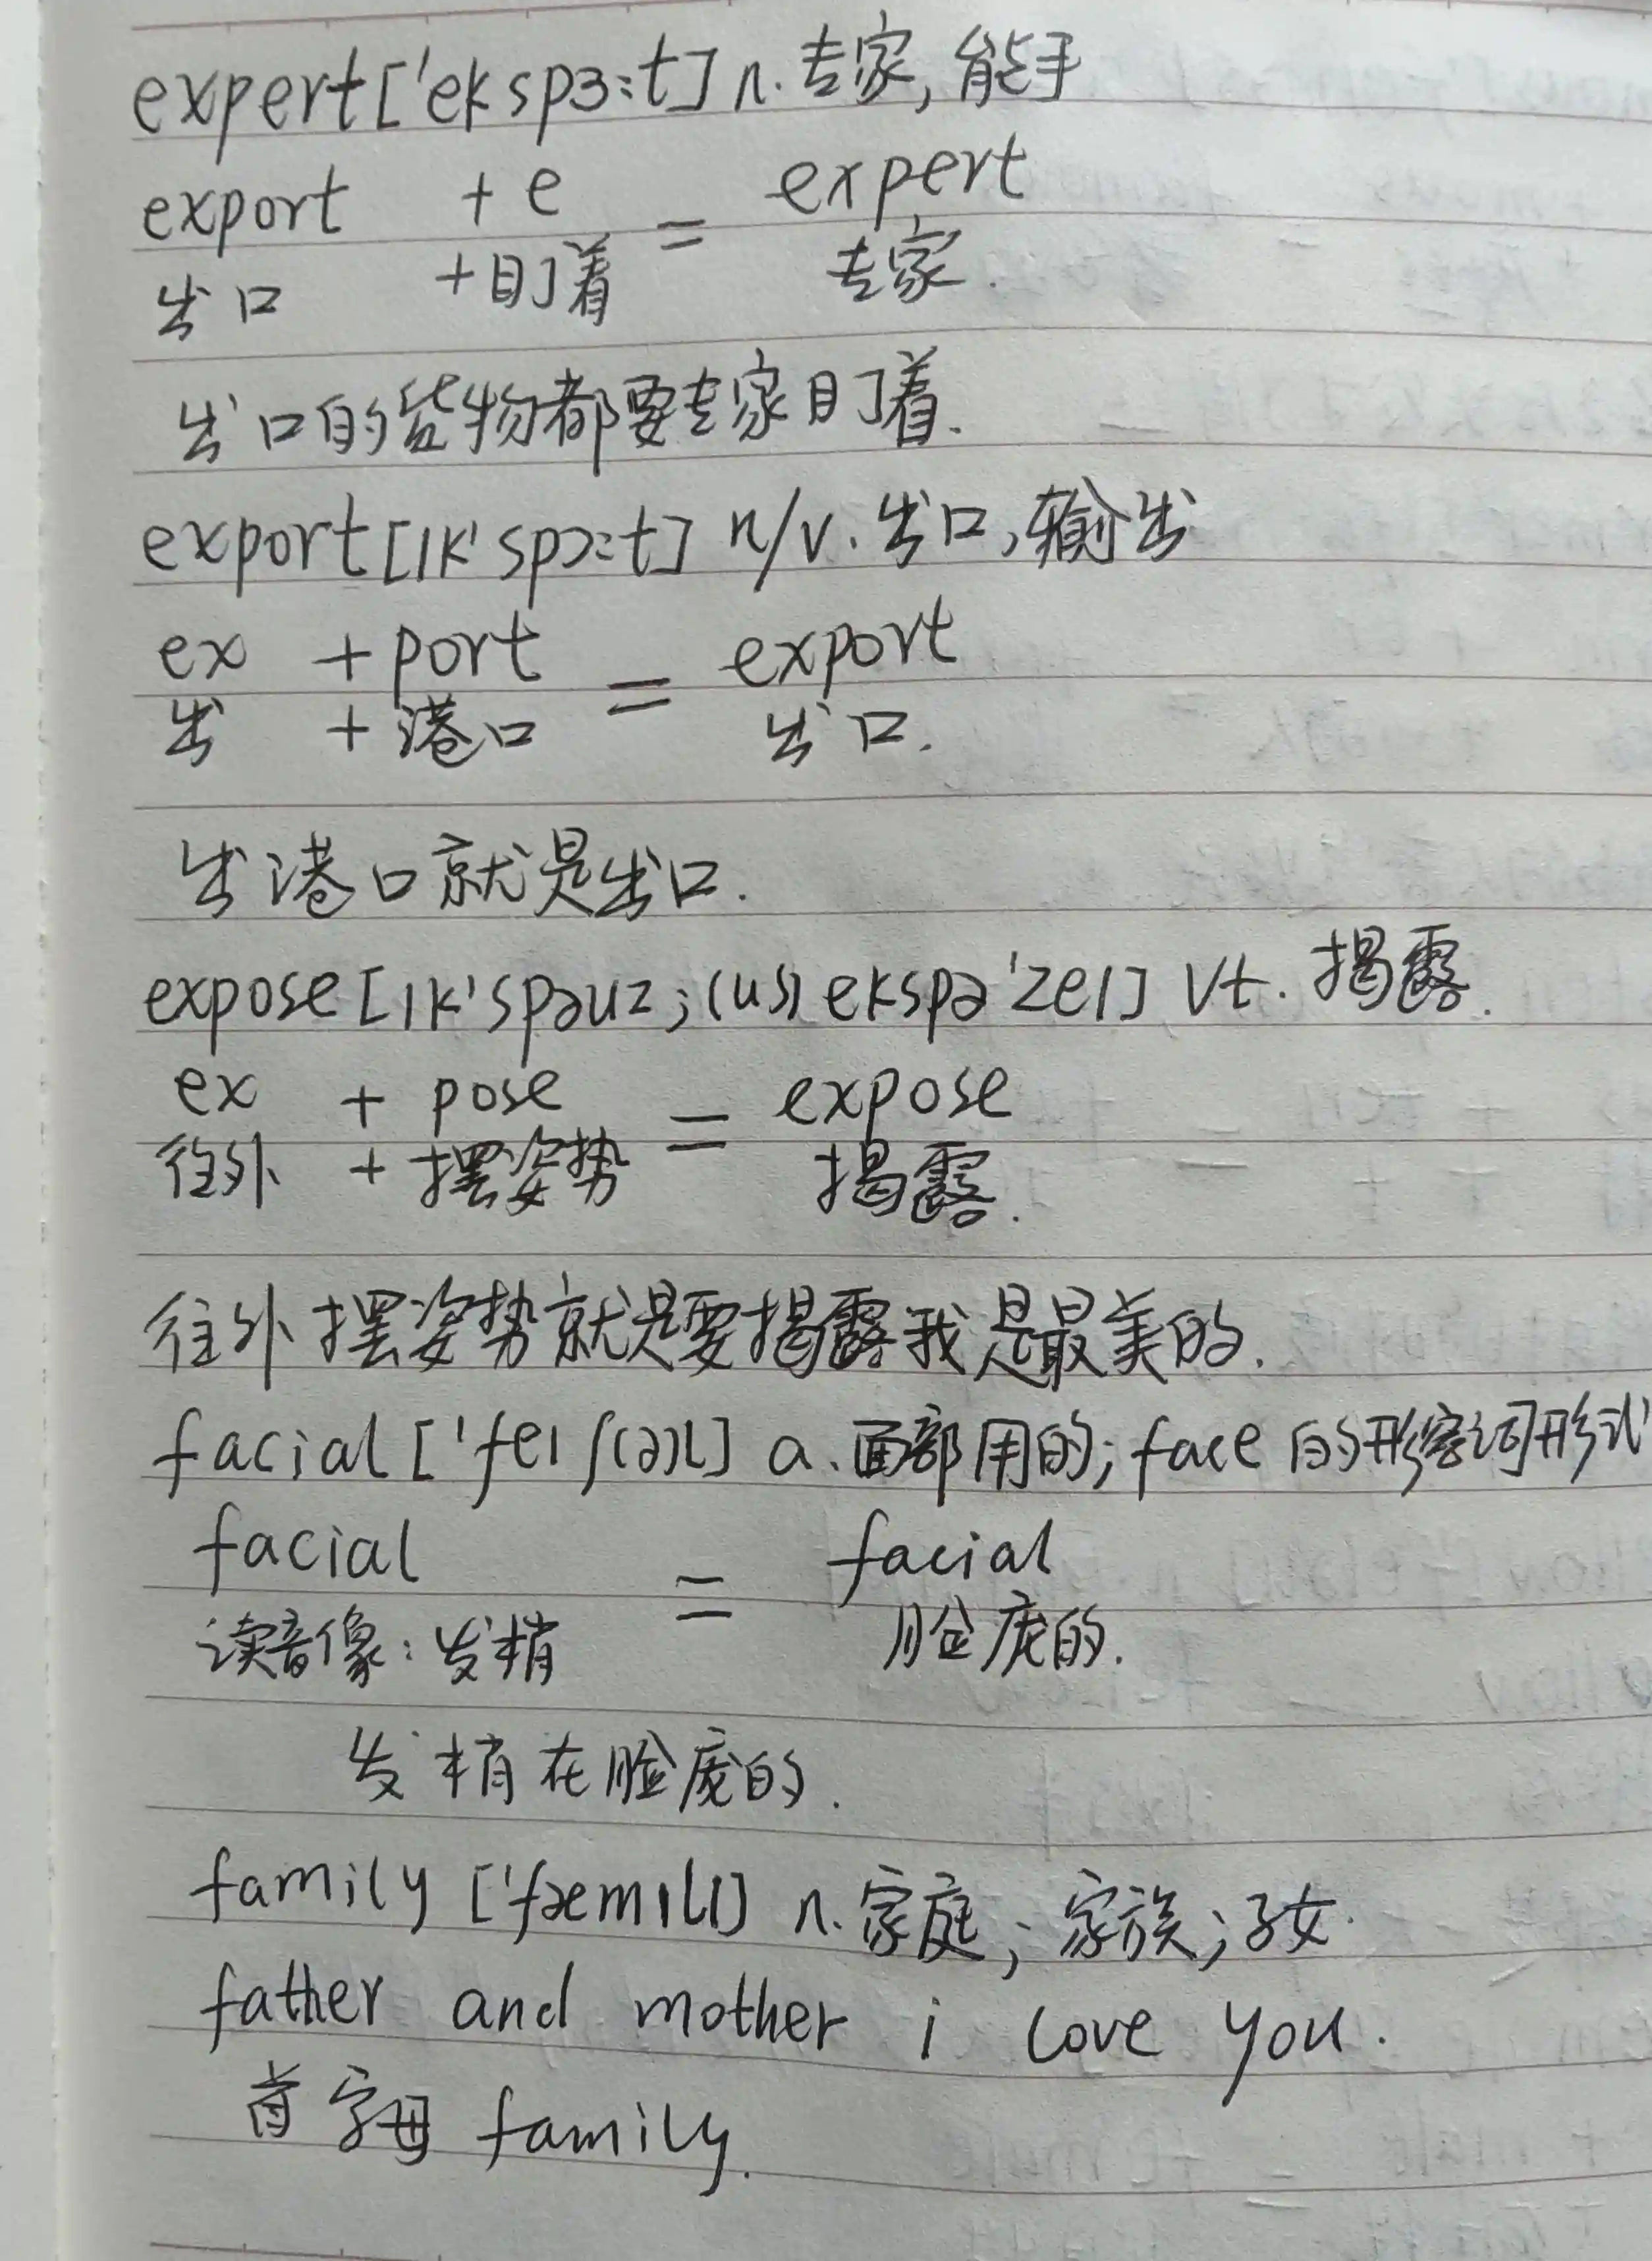 expert['ekspɜ:t] n.专家,能手
export + e = expert
出口 +盯着 专家.
出口的货物都要专家盯着.
export[ɪk'spɔ:t] n/v.出口,输出
ex + port = export
出 +港口 出口.
出港口就是出口.
expose[ɪk'spəuz;(us) ekspə'zeɪ] vt.揭露.
ex + pose = expose
往外 +摆姿势 揭露.
往外摆姿势就是要揭露我是最美的.
facial['feɪʃ(ə)l] a.面部用的;face的形容词形式
facial = facial
读音像:发梢 脸庞的.
发梢在脸庞的.
family ['fæmɪlɪ] n.家庭;家族;子女.
father and mother i love you.
首字母 family.